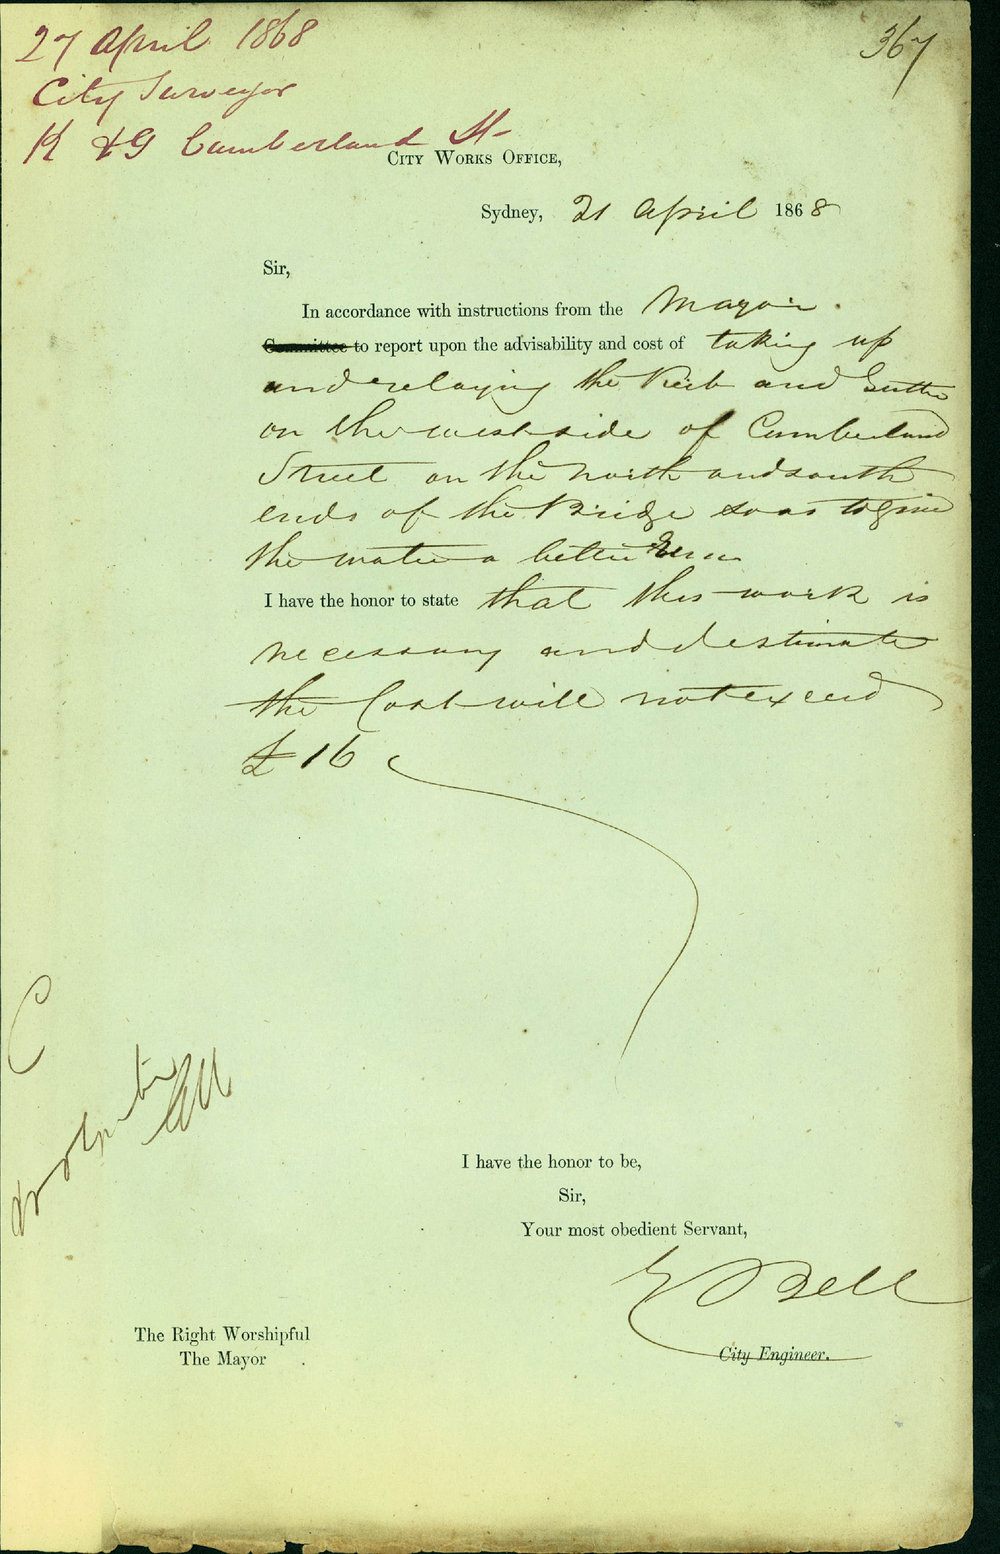 27 April 1868
367
City Surveyor
K & G Cumberland St
CITY WORKS OFFICE,
Sydney, 21 April 1868
Sir,
In accordance with instructions from the Mayor
Committee to report upon the advisability and cost of taking up
and relaying the Kerb and Gutter
on the west side of Cumberland
Street on the north and south
ends of the Bridge so as to give
the water a better run
I have the honor to state that this work is
necessary and I estimate
the Cost will not exceed
£16
I have the honor to be,
Sir,
Your most obedient Servant,
E Bell
City Engineer.
The Right Worshipful
The Mayor